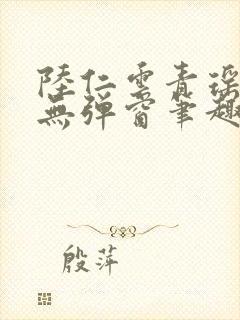 陸仁雲青瑶
無彈窗筆趣
殷萍